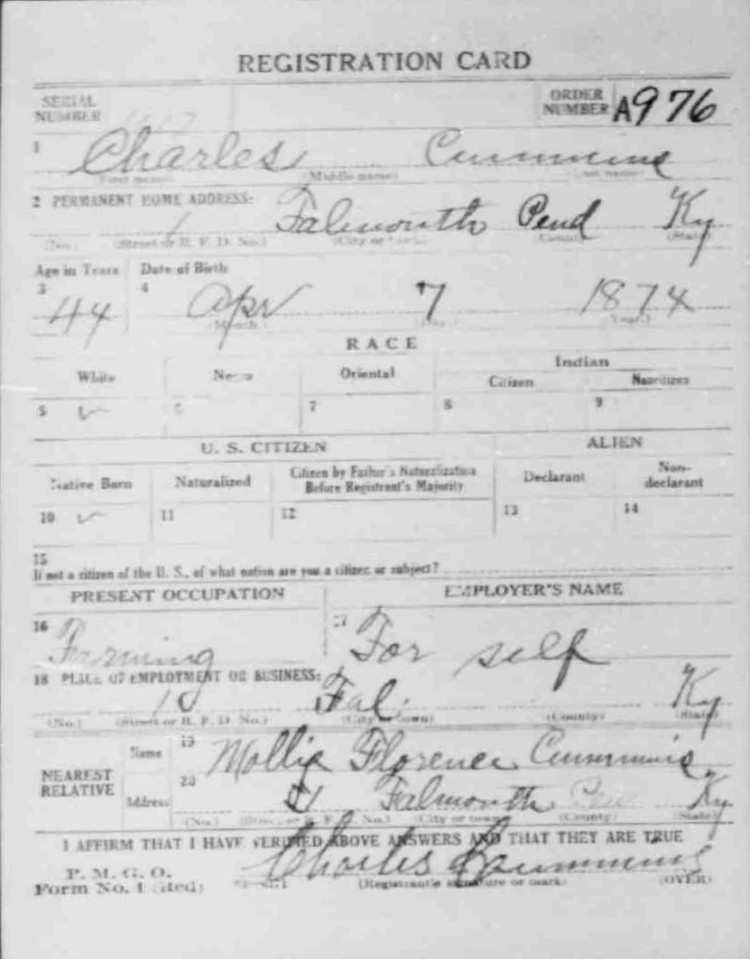 REGISTRATION CARD
SERIAL NUMBER ORDER NUMBER A976
1 Charles Cummins
(First name) (Middle name) (Last name)
2 PERMANENT HOME ADDRESS:
1 Falmouth Pend Ky
(No.) (Street or R. F. D. No.) (City or town) (County) (State)
Age in Years Date of Birth
3 44 4 Apr 7 1874
(Month.) (Day.) (Year.)
RACE
White Negro Oriental Indian
Citizen Noncitizen
5 ✓ 6 7 8 9
U. S. CITIZEN ALIEN
Native Born Naturalized Citizen by Father's Naturalization Before Registrant's Majority Declarant Non-declarant
10 ✓ 11 12 13 14
15
If not a citizen of the U. S., of what nation are you a citizen or subject?
PRESENT OCCUPATION EMPLOYER'S NAME
16 Farming 17 For self
18 PLACE OF EMPLOYMENT OR BUSINESS:
1 Fal. Ky
(No.) (Street or R. F. D. No.) (City or town) (County) (State)
NEAREST RELATIVE
Name 19 Mollie Florence Cummins
Address 20 Falmouth Pend Ky
(No.) (Street or R. F. D. No.) (City or town) (County) (State)
I AFFIRM THAT I HAVE VERIFIED ABOVE ANSWERS AND THAT THEY ARE TRUE
P. M. G. O.
Form No. 1 (Red) Charles Cummins
(Registrant's signature or mark) (OVER)